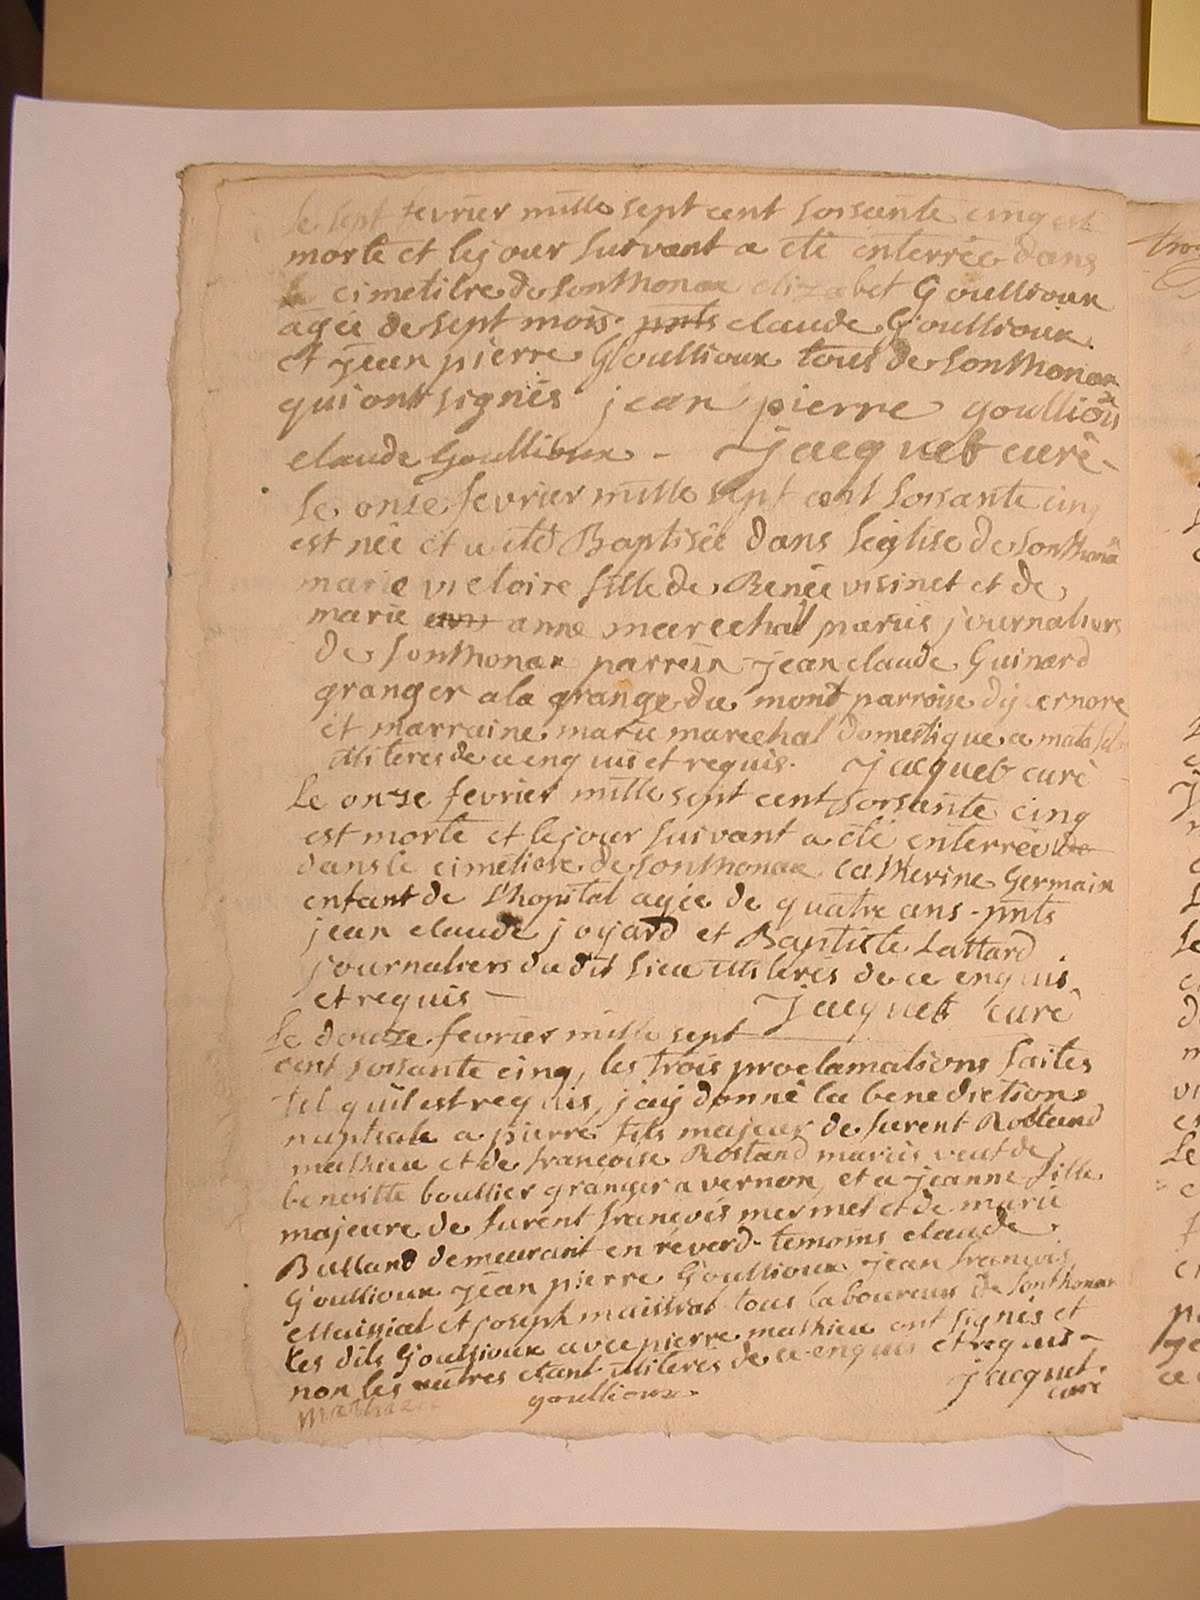 le sept fevrier mille sept cent soisante cinq est
morte et le jour suivant a eté enterrée dans
le cimetiere de Sonthonax elizabet Goullioux
agée de sept mois. pnts claude Goullioux
et jean pierre Goullioux tous de Sonthonax
qui ont signés jean pierre goullioux
claude Goullioux - Jacquet curé -
le onze fevrier mille sept cent soisante cinq
est née et a eté Baptisée dans l'église de Sonthonax
marie victoire fille de Renée visinet et de
marie anne marechall mariés journaliers
de Sonthonax parrein jean claude Guinard
granger a la grange du mont parroise dizernore
et marraine marie marechal domestique a
illiteres de ce enquis et requis. Jacquet curé
le onze fevrier mille sept cent soisante cinq
est morte et le jour suivant a eté enterrée
dans le cimetiere de Sonthonax catherine Germain
enfant de l'hopital agée de quatre ans - pnts
jean claude joyard et Baptiste Lattard
journaliers du dit lieu illiteres de ce enquis
et requis - Jacquet curé
le douze fevrier mille sept
cent soisante cinq, les trois proclamations faites
tel qu'il est requis, j'ay donné la benediction
nuptiale a pierre fils majeur de furent Rolland
mathieu et de francoise Rostand mariés veuf de
benoitte boullier granger a vernon, et a jeanne fille
majeure de furent francois mermet et de marie
Bulland demeurant en reverd - temoins claude
Goullioux jean pierre Goullioux jean francois
Maissiat et joseph maissiat tous laboureurs de Sonthonax
les dits Goullioux avec pierre mathieu ont signés et
non les autres etant illiteres de ce enquis et requis -
mathieu goullioux Jacquet
curé